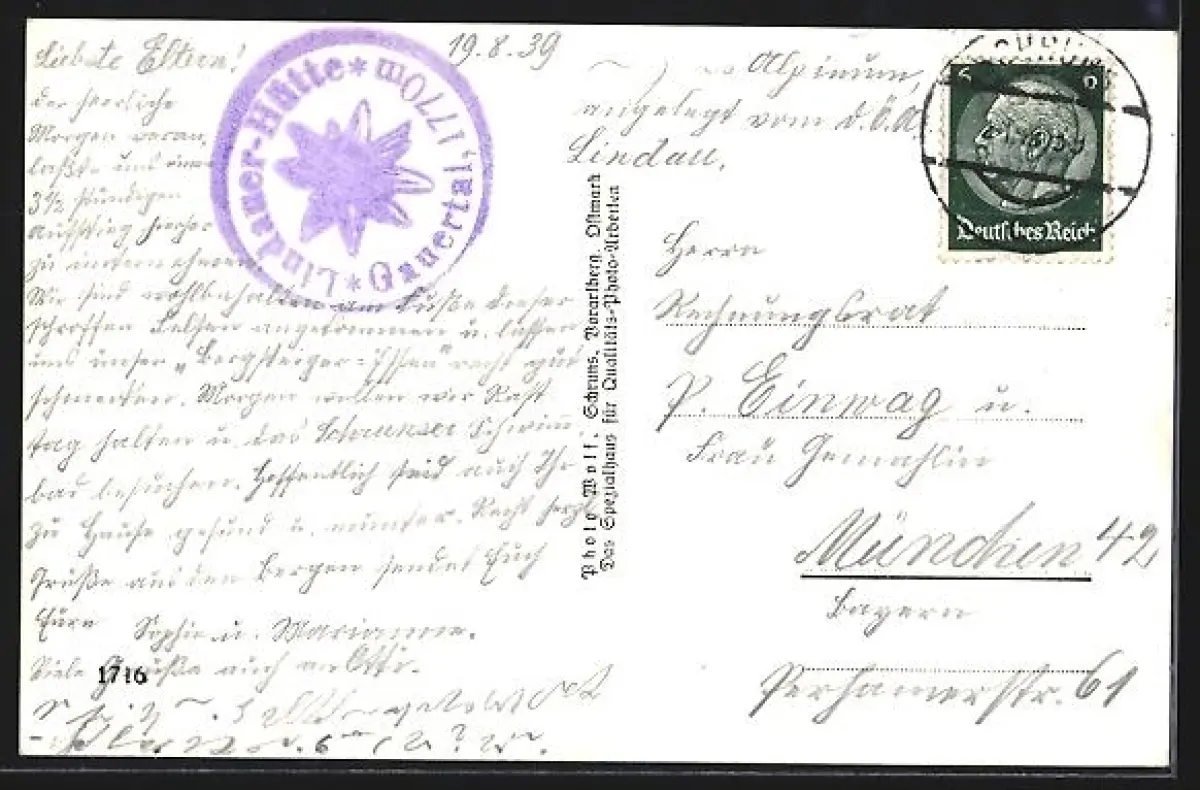 19.8.39
Liebste Eltern!
der herrliche
Morgen veran-
laßte uns einen
3½ stündigen
Aufstieg hierher
zu unternehmen.
Wir sind wohlbehalten am Fuße dieser
schroffen Felsen angekommen u. lassen
uns unser „Bergsteiger-Essen" recht gut
schmecken. Morgen wollen wir Rast
tag halten u. das Schrunser Schwimm-
bad besuchen. Hoffentlich seid auch Ihr
zu Hause gesund u. munter. Recht herzl.
Grüße aus den Bergen sendet Euch
Eure Sophie u. Marianne.
Viele Grüße auch an
1716
* Lindauer-Hütte * 1770M
Gauertal
Alpinum,
angelegt vom d.Ö.A.
Lindau.
Photo Wolf, Schruns, Vorarlberg, Ostmark
Das Spezialhaus für Qualitäts-Photo-Arbeiten
6
Deutsches Reich
Herrn
Rechnungsrat
P. Einwag u.
Frau Gemahlin
München 42
Bayern
Perhamerstr. 61